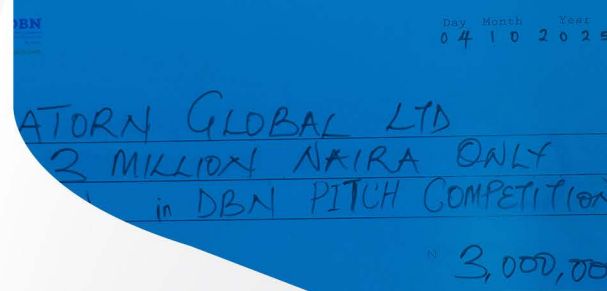 DBN
Day Month Year
04 10 2025
ATORN GLOBAL LTD
3 MILLION NAIRA ONLY
in DBN PITCH COMPETITION
N 3,000,00